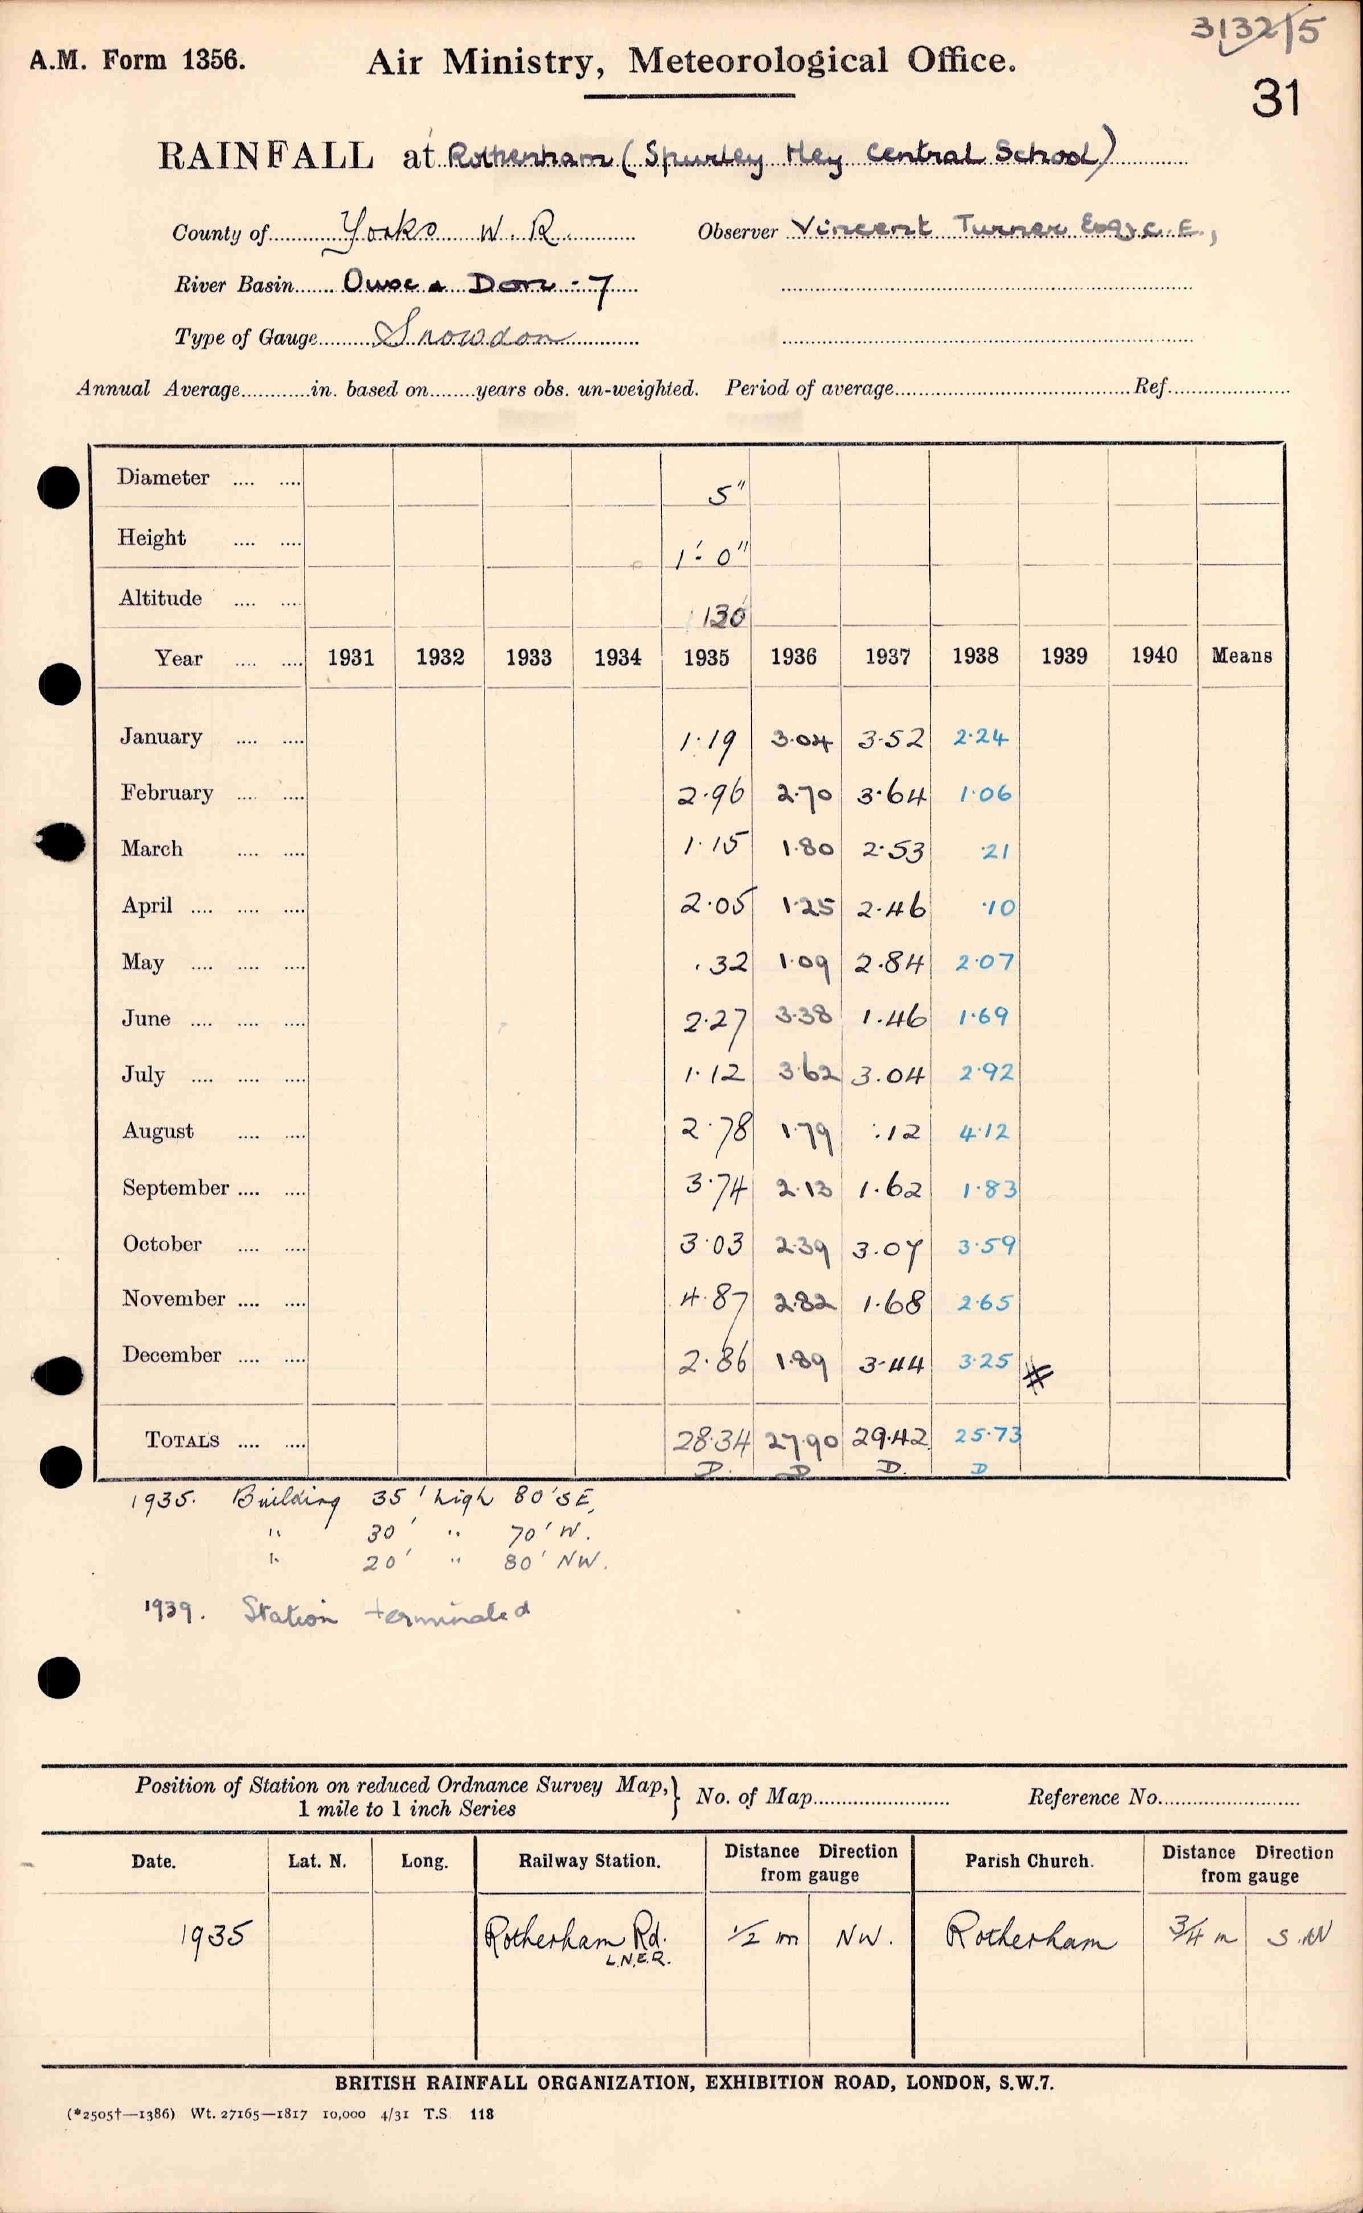 3132/5
A.M. Form 1356. Air Ministry, Meteorological Office.
31
RAINFALL at Rotherham (Spurley Hey Central School)
County of Yorks W.R. Observer Vincent Turner Esq., C.E.,
River Basin Ouse & Don - 7
Type of Gauge Snowdon
Annual Average in. based on years obs. un-weighted. Period of average Ref
Diameter 5"
Height 1'-0"
Altitude 130'
Year 1931 1932 1933 1934 1935 1936 1937 1938 1939 1940 Means
January 1.19 3.04 3.52 2.24
February 2.96 2.70 3.64 1.06
March 1.15 1.80 2.53 .21
April 2.05 1.25 2.46 .10
May .32 1.09 2.84 2.07
June 2.27 3.38 1.46 1.69
July 1.12 3.62 3.04 2.92
August 2.78 1.79 .12 4.12
September 3.74 2.13 1.62 1.83
October 3.03 2.39 3.07 3.59
November 4.87 2.82 1.68 2.65
December 2.86 1.89 3.44 3.25 #
TOTALS 28.34 27.90 29.42 25.73
D. D D. D
1935. Building 35' high 80' SE,
" 30' " 70' W.
" 20' " 80' NW.
1939. Station terminated
Position of Station on reduced Ordnance Survey Map, } No. of Map Reference No.
1 mile to 1 inch Series
Date. Lat. N. Long. Railway Station. Distance Direction from gauge Parish Church. Distance Direction from gauge
1935 Rotherham Rd. 1/2 m NW. Rotherham 3/4 m S.W
L.N.E.R.
BRITISH RAINFALL ORGANIZATION, EXHIBITION ROAD, LONDON, S.W.7.
(*2505†—1386) Wt. 27165—1817 10,000 4/31 T.S. 118